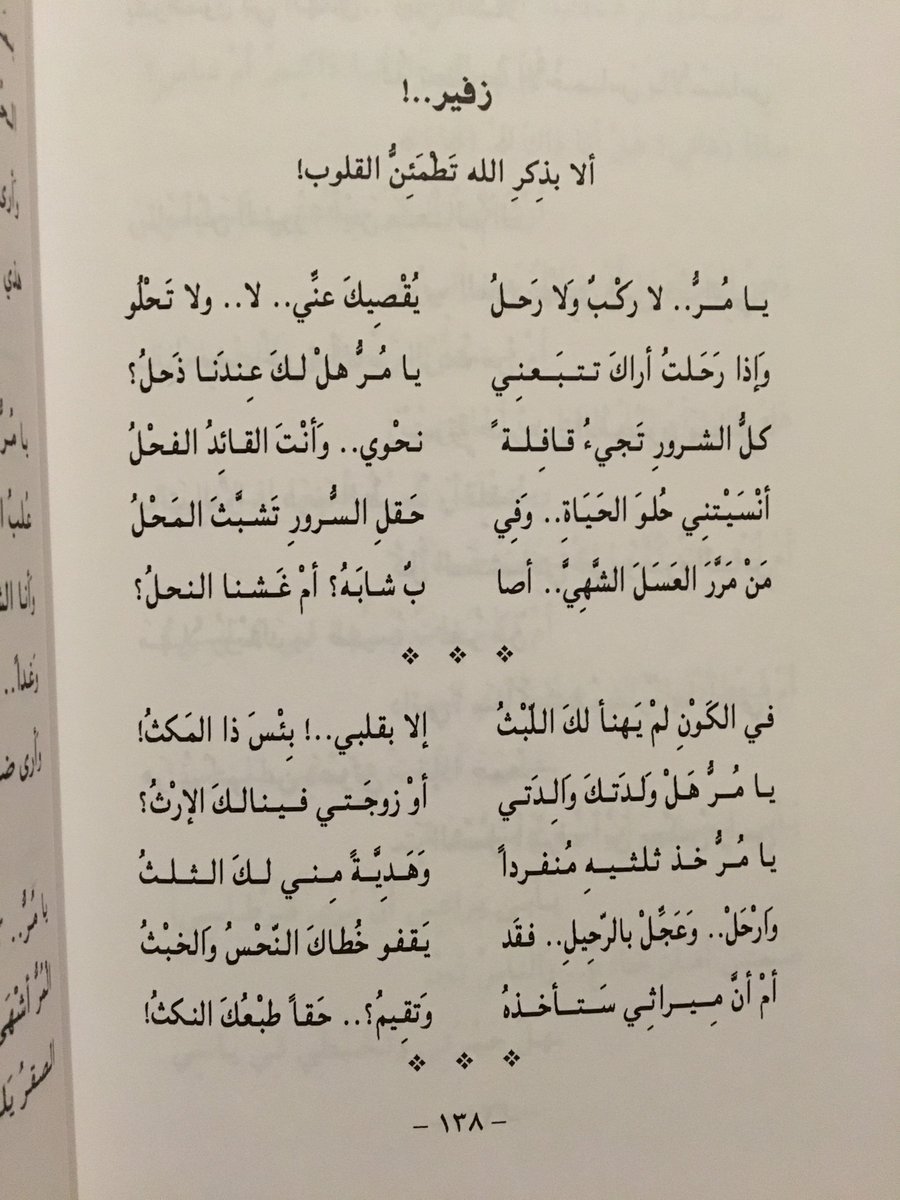 زفير..!
ألا بذِكرِ الله تَطْمَئِنُّ القلوب!
يـا مُـرُّ.. لا ركْـبٌ وَلا رَحـلُ يُقْصِيكَ عنِّي.. لا.. ولا تَحْلُو
وَإذا رَحَلتُ أراكَ تـتـبَـعـنِي يـا مُـرُّ هلْ لـكَ عِندَنَـا ذَحلُ؟
كلُّ الشـرورِ تَجيءُ قـافِـلـةً نحْوي.. وَأنْتَ القَائِدُ الفحْلُ
أنْسَيْتنِي حُلوَ الحَيَاةِ.. وَفِي حَـقلِ السُّـرورِ تَشـبَّـثَ المَحْلُ
مَنْ مَرَّرَ العَسَلَ الشَّهِيَّ.. أصا بٌ شـابَـهُ؟ أمْ غَـشـنا النحلُ؟
في الكَوْنِ لمْ يَهنأ لكَ اللّبْثُ إلا بقلبي..! بِئْسَ ذا المَكثُ!
يـا مُـرُّ هَلْ وَلـدَتـكَ وَالِدَتي أوْ زوجَـتـي فـيـنـالـكَ الإرْثُ؟
يا مُـرُّ خذ ثلثـيـهِ مُنفـرداً وَهَـدِيَّـةً مِـنـي لـكَ الـثـلـثُ
وَارْحَلْ.. وَعَجِّلْ بالرّحِيلِ.. فقَد يَـقفـو خُطاكَ النّحْسُ وَالخبْثُ
أمْ أنَّ مِـيـراثِي سَـتـأخـذهُ وَتَقِيمُ؟.. حَقاً طبْعُكَ النكثُ!
– ١٣٨ –